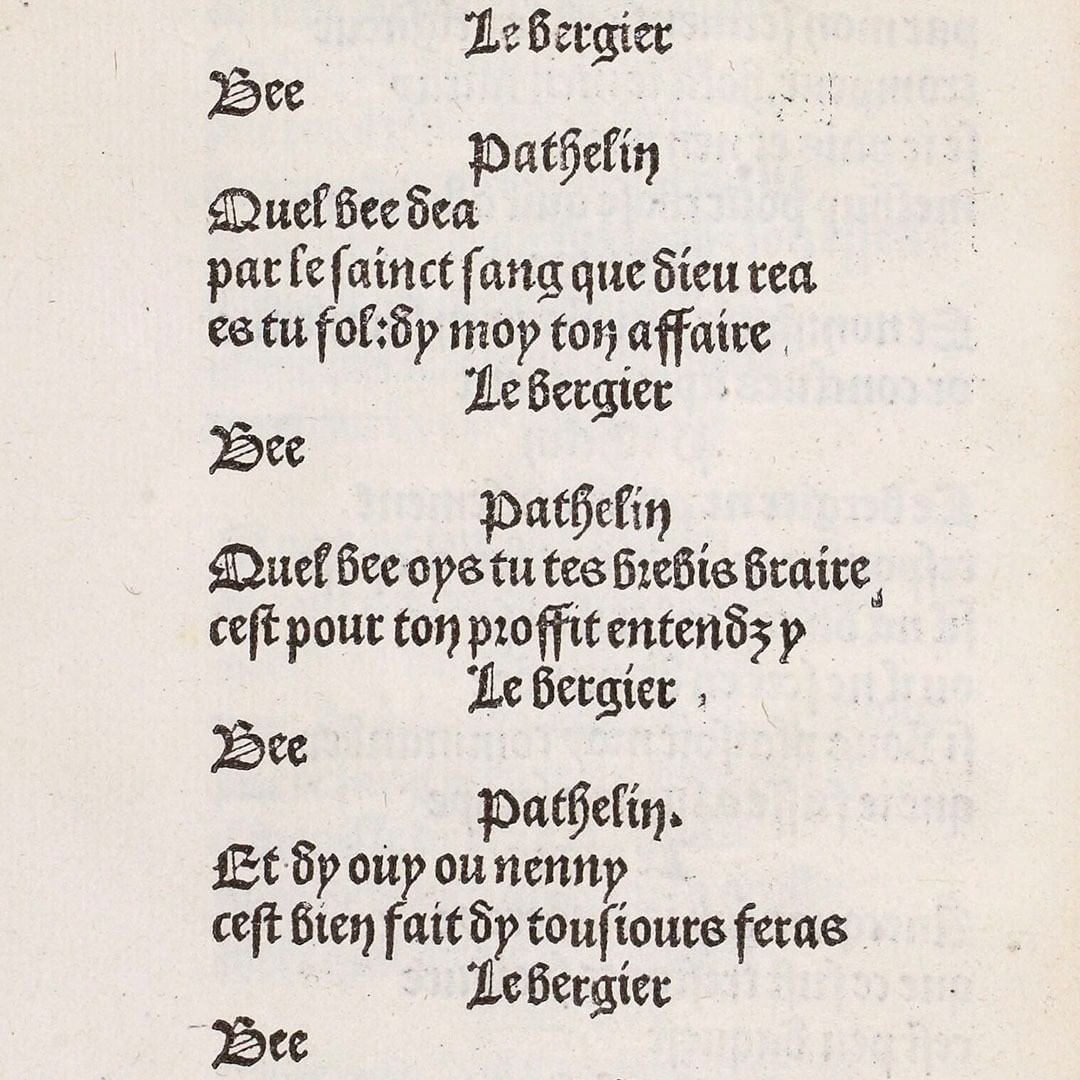 Le bergier
Bee
Pathelin
Quel bee dea
par le sainct sang que dieu rea
es tu fol:dy moy ton affaire
Le bergier
Bee
Pathelin
Quel bee oys tu tes brebis braire
cest pour ton proffit entendz y
Le bergier
Bee
Pathelin.
Et dy ouy ou nenny
cest bien fait dy tousiours feras
Le bergier
Bee